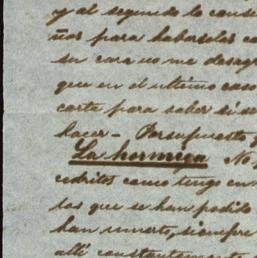 y al segundo lo conse
ños para haberselos co
su cara no me desagr
que en el ultimo caso
carta para saber si se
hacer - Por supuesto y
La hormiga No
cedritos como tengo en
tos que se han podido
han muerto, siempre
allí constantemente